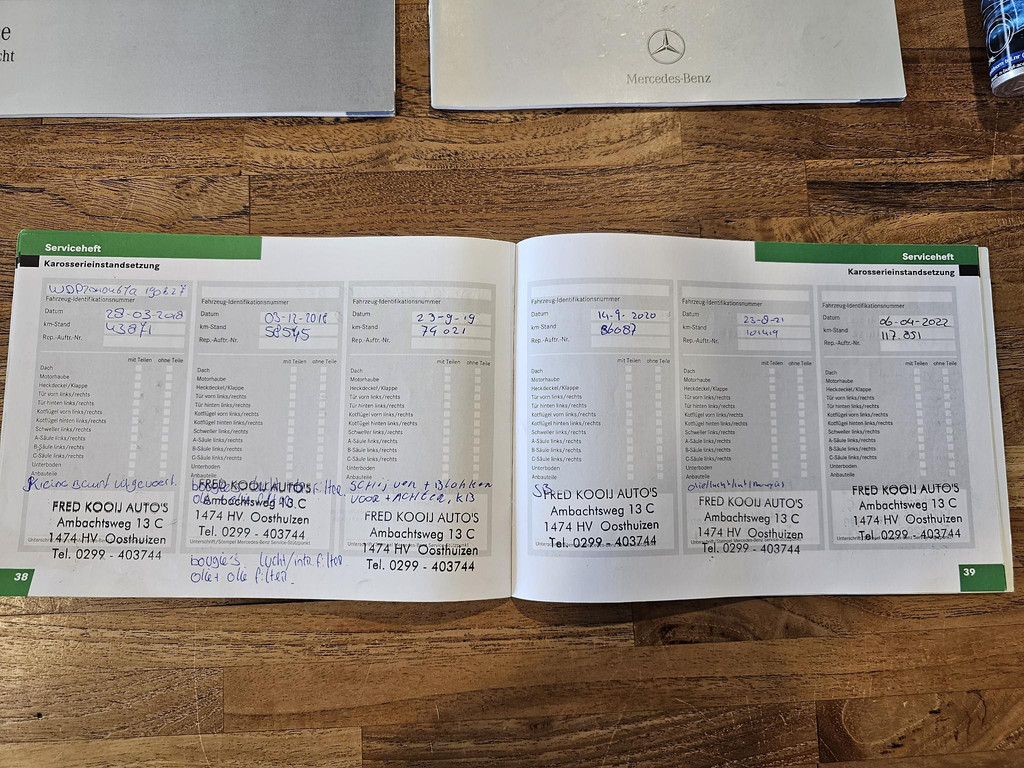 e
cht
Mercedes-Benz
Serviceheft
Karosserieinstandsetzung
Fahrzeug-Identifikationsnummer
Datum 28-03-2018
km-Stand 43871
Rep.-Auftr.-Nr.
mit Teilen ohne Teile
Dach
Motorhaube
Heckdeckel/Klappe
Tür vorn links/rechts
Tür hinten links/rechts
Kotflügel vorn links/rechts
Kotflügel hinten links/rechts
Schweller links/rechts
A-Säule links/rechts
B-Säule links/rechts
C-Säule links/rechts
Unterboden
Anbauteile
Kleine beurt uitgevoert.
FRED KOOIJ AUTO'S
Ambachtsweg 13 C
1474 HV Oosthuizen
Tel. 0299 - 403744
38
Fahrzeug-Identifikationsnummer
Datum 03-12-2018
km-Stand 58545
Rep.-Auftr.-Nr.
mit Teilen ohne Teile
Dach
Motorhaube
Heckdeckel/Klappe
Tür vorn links/rechts
Tür hinten links/rechts
Kotflügel vorn links/rechts
Kotflügel hinten links/rechts
Schweller links/rechts
A-Säule links/rechts
B-Säule links/rechts
C-Säule links/rechts
Unterboden
Anbauteile
FRED KOOIJ AUTO'S
Ambachtsweg 13 C
1474 HV Oosthuizen
Unterschrift/Stempel Mercedes-Benz Service-Stützpunkt
Tel. 0299 - 403744
bougie's lucht/intr. filter.
olie + olie filter.
Fahrzeug-Identifikationsnummer
Datum 23-9-19
km-Stand 74021
Rep.-Auftr.-Nr.
mit Teilen ohne Teile
Dach
Motorhaube
Heckdeckel/Klappe
Tür vorn links/rechts
Tür hinten links/rechts
Kotflügel vorn links/rechts
Kotflügel hinten links/rechts
Schweller links/rechts
A-Säule links/rechts
B-Säule links/rechts
C-Säule links/rechts
Unterboden
Anbauteile
SCHIJVEN + BLOKKEN
VOOR + ACHTER, KB
FRED KOOIJ AUTO'S
Ambachtsweg 13 C
1474 HV Oosthuizen
Tel. 0299 - 403744
Serviceheft
Karosserieinstandsetzung
Fahrzeug-Identifikationsnummer
Datum 14-9-2020
km-Stand 86087
Rep.-Auftr.-Nr.
mit Teilen ohne Teile
Dach
Motorhaube
Heckdeckel/Klappe
Tür vorn links/rechts
Tür hinten links/rechts
Kotflügel vorn links/rechts
Kotflügel hinten links/rechts
Schweller links/rechts
A-Säule links/rechts
B-Säule links/rechts
C-Säule links/rechts
Unterboden
Anbauteile
FRED KOOIJ AUTO'S
Ambachtsweg 13 C
1474 HV Oosthuizen
Tel. 0299 - 403744
Fahrzeug-Identifikationsnummer
Datum
km-Stand 101419
Rep.-Auftr.-Nr.
mit Teilen ohne Teile
Dach
Motorhaube
Heckdeckel/Klappe
Tür vorn links/rechts
Tür hinten links/rechts
Kotflügel vorn links/rechts
Kotflügel hinten links/rechts
Schweller links/rechts
A-Säule links/rechts
B-Säule links/rechts
C-Säule links/rechts
Unterboden
Anbauteile
FRED KOOIJ AUTO'S
Ambachtsweg 13 C
1474 HV Oosthuizen
Tel. 0299 - 403744
Fahrzeug-Identifikationsnummer
Datum 06-04-2022
km-Stand 117.851
Rep.-Auftr.-Nr.
mit Teilen ohne Teile
Dach
Motorhaube
Heckdeckel/Klappe
Tür vorn links/rechts
Tür hinten links/rechts
Kotflügel vorn links/rechts
Kotflügel hinten links/rechts
Schweller links/rechts
A-Säule links/rechts
B-Säule links/rechts
C-Säule links/rechts
Unterboden
Anbauteile
FRED KOOIJ AUTO'S
Ambachtsweg 13 C
1474 HV Oosthuizen
Tel. 0299 - 403744
39